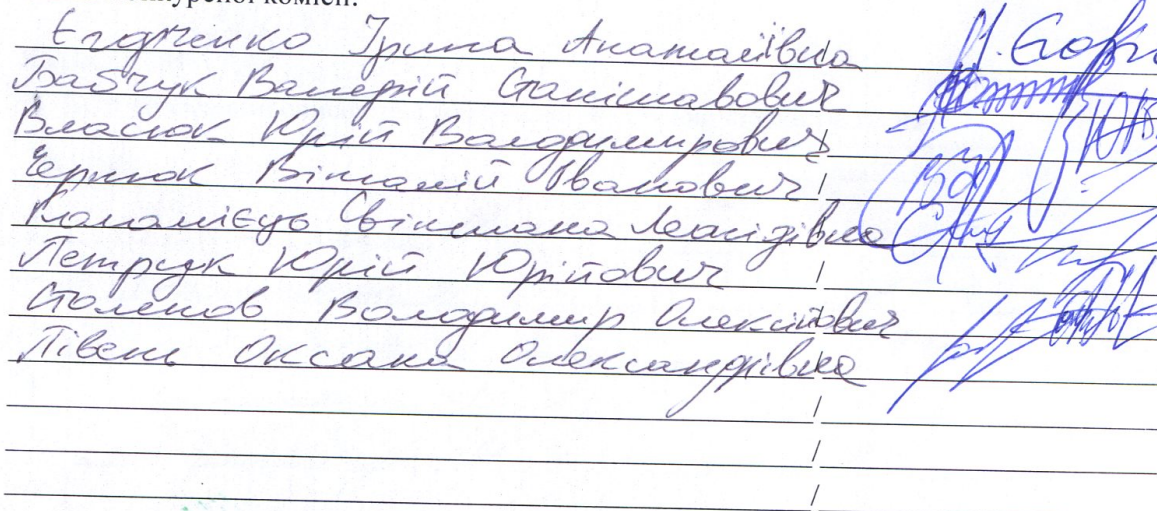 конкурсної комісії:
Ірина Анатоліївна
Бабчук Валерій Станіславович
Власюк Юрій Володимирович /
Чернюк Віталій Іванович /
Коломієць Світлана Леонідівна
Петрук Юрій Юрійович /
Володимир Олексійович
Півень Оксана Олександрівна
/
/
/